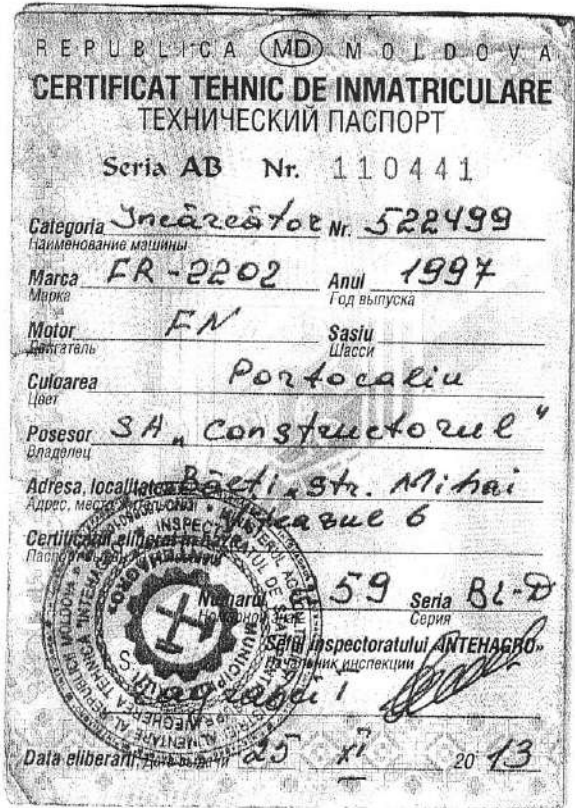 REPUBLICA MD MOLDOVA
CERTIFICAT TEHNIC DE INMATRICULARE
ТЕХНИЧЕСКИЙ ПАСПОРТ
Seria AB Nr. 110441
Categoria Încărcător Nr. 522499
Наименование машины
Marca FR-2202 Anul 1997
Марка Год выпуска
Motor FN Sasiu
Двигатель Шасси
Culoarea Portocaliu
Цвет
Posesor SA „Constructorul"
Владелец
Adresa, localitatea Bălți, str. Mihai
Адрес, место жительства Viteazul 6
Certificatul eliberat în baza
Numarul 59 Seria BL-D
Номерной знак Серия
Seful inspectoratului «INTEHAGRO»
Начальник инспекции
Data eliberarii Дата выдачи 25 XI 2013